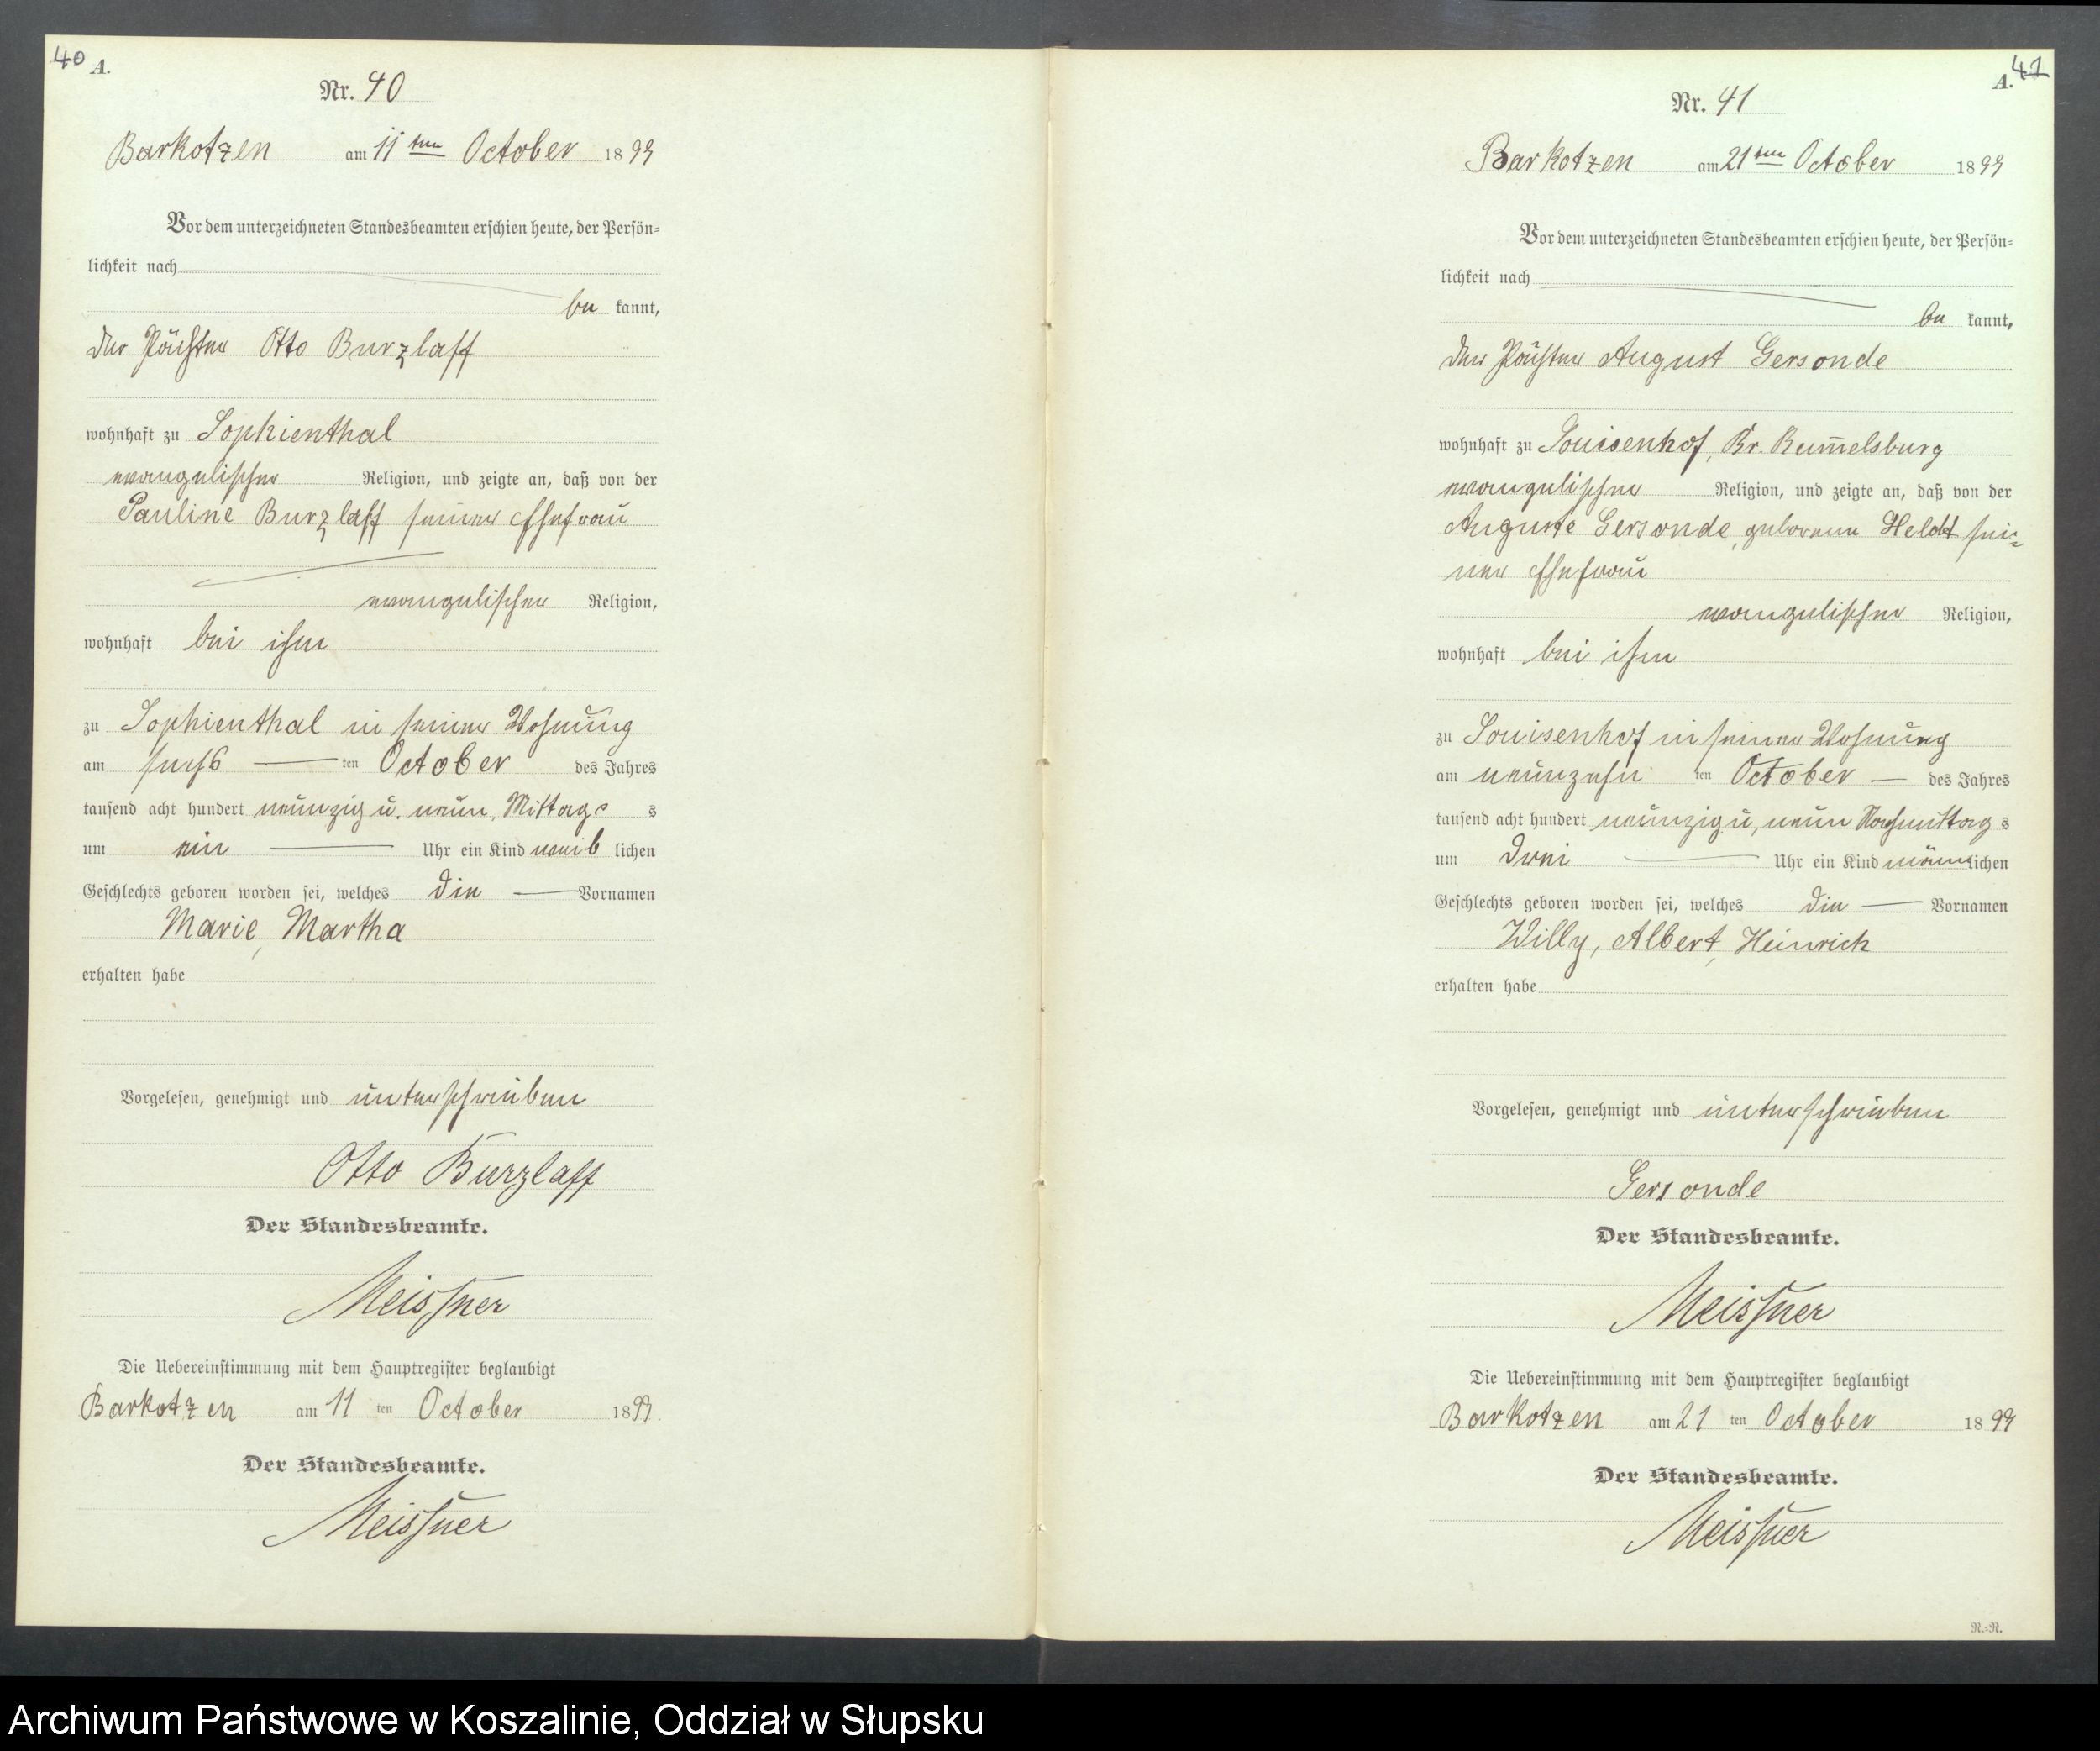 40 A.
Nr. 40
Barkotzen am 11ten October 1899
Vor dem unterzeichneten Standesbeamten erschien heute, der Persön=
lichkeit nach
be kannt,
der Pächter Otto Burzlaff
wohnhaft zu Sophienthal
evangelischer Religion, und zeigte an, daß von der
Pauline Burzlaff seiner Ehefrau
evangelischer Religion,
wohnhaft bei ihm
zu Sophienthal in seiner Wohnung
am sechs ten October des Jahres
tausend acht hundert neunzig u. neun, Mittags s
um ein Uhr ein Kind weib lichen
Geschlechts geboren worden sei, welches die Vornamen
Marie, Martha
erhalten habe
Vorgelesen, genehmigt und unterschrieben
Otto Burzlaff
Der Standesbeamte.
Meissner
Die Uebereinstimmung mit dem Hauptregister beglaubigt
Barkotzen am 11 ten October 1899.
Der Standesbeamte.
Meissner
A. 41
Nr. 41
Barkotzen am 21ten October 1899
Vor dem unterzeichneten Standesbeamten erschien heute, der Persön=
lichkeit nach
be kannt,
der Pächter August Gersonde
wohnhaft zu Louisenhof, Kr. Rum̅elsburg
evangelischer Religion, und zeigte an, daß von der
Auguste Gersonde, geborene Heldt sei=
ner Ehefrau
evangelischer Religion,
wohnhaft bei ihm
zu Louisenhof in seiner Wohnung
am neunzehn ten October des Jahres
tausend acht hundert neunzig u, neun Nachmittag s
um drei Uhr ein Kind männlichen
Geschlechts geboren worden sei, welches die Vornamen
Willy, Albert, Heinrich
erhalten habe
Vorgelesen, genehmigt und unterschrieben
Gersonde
Der Standesbeamte.
Meissner
Die Uebereinstimmung mit dem Hauptregister beglaubigt
Barkotzen am 21 ten October 1899
Der Standesbeamte.
Meissner
R.=R.
Archiwum Państwowe w Koszalinie, Oddział w Słupsku